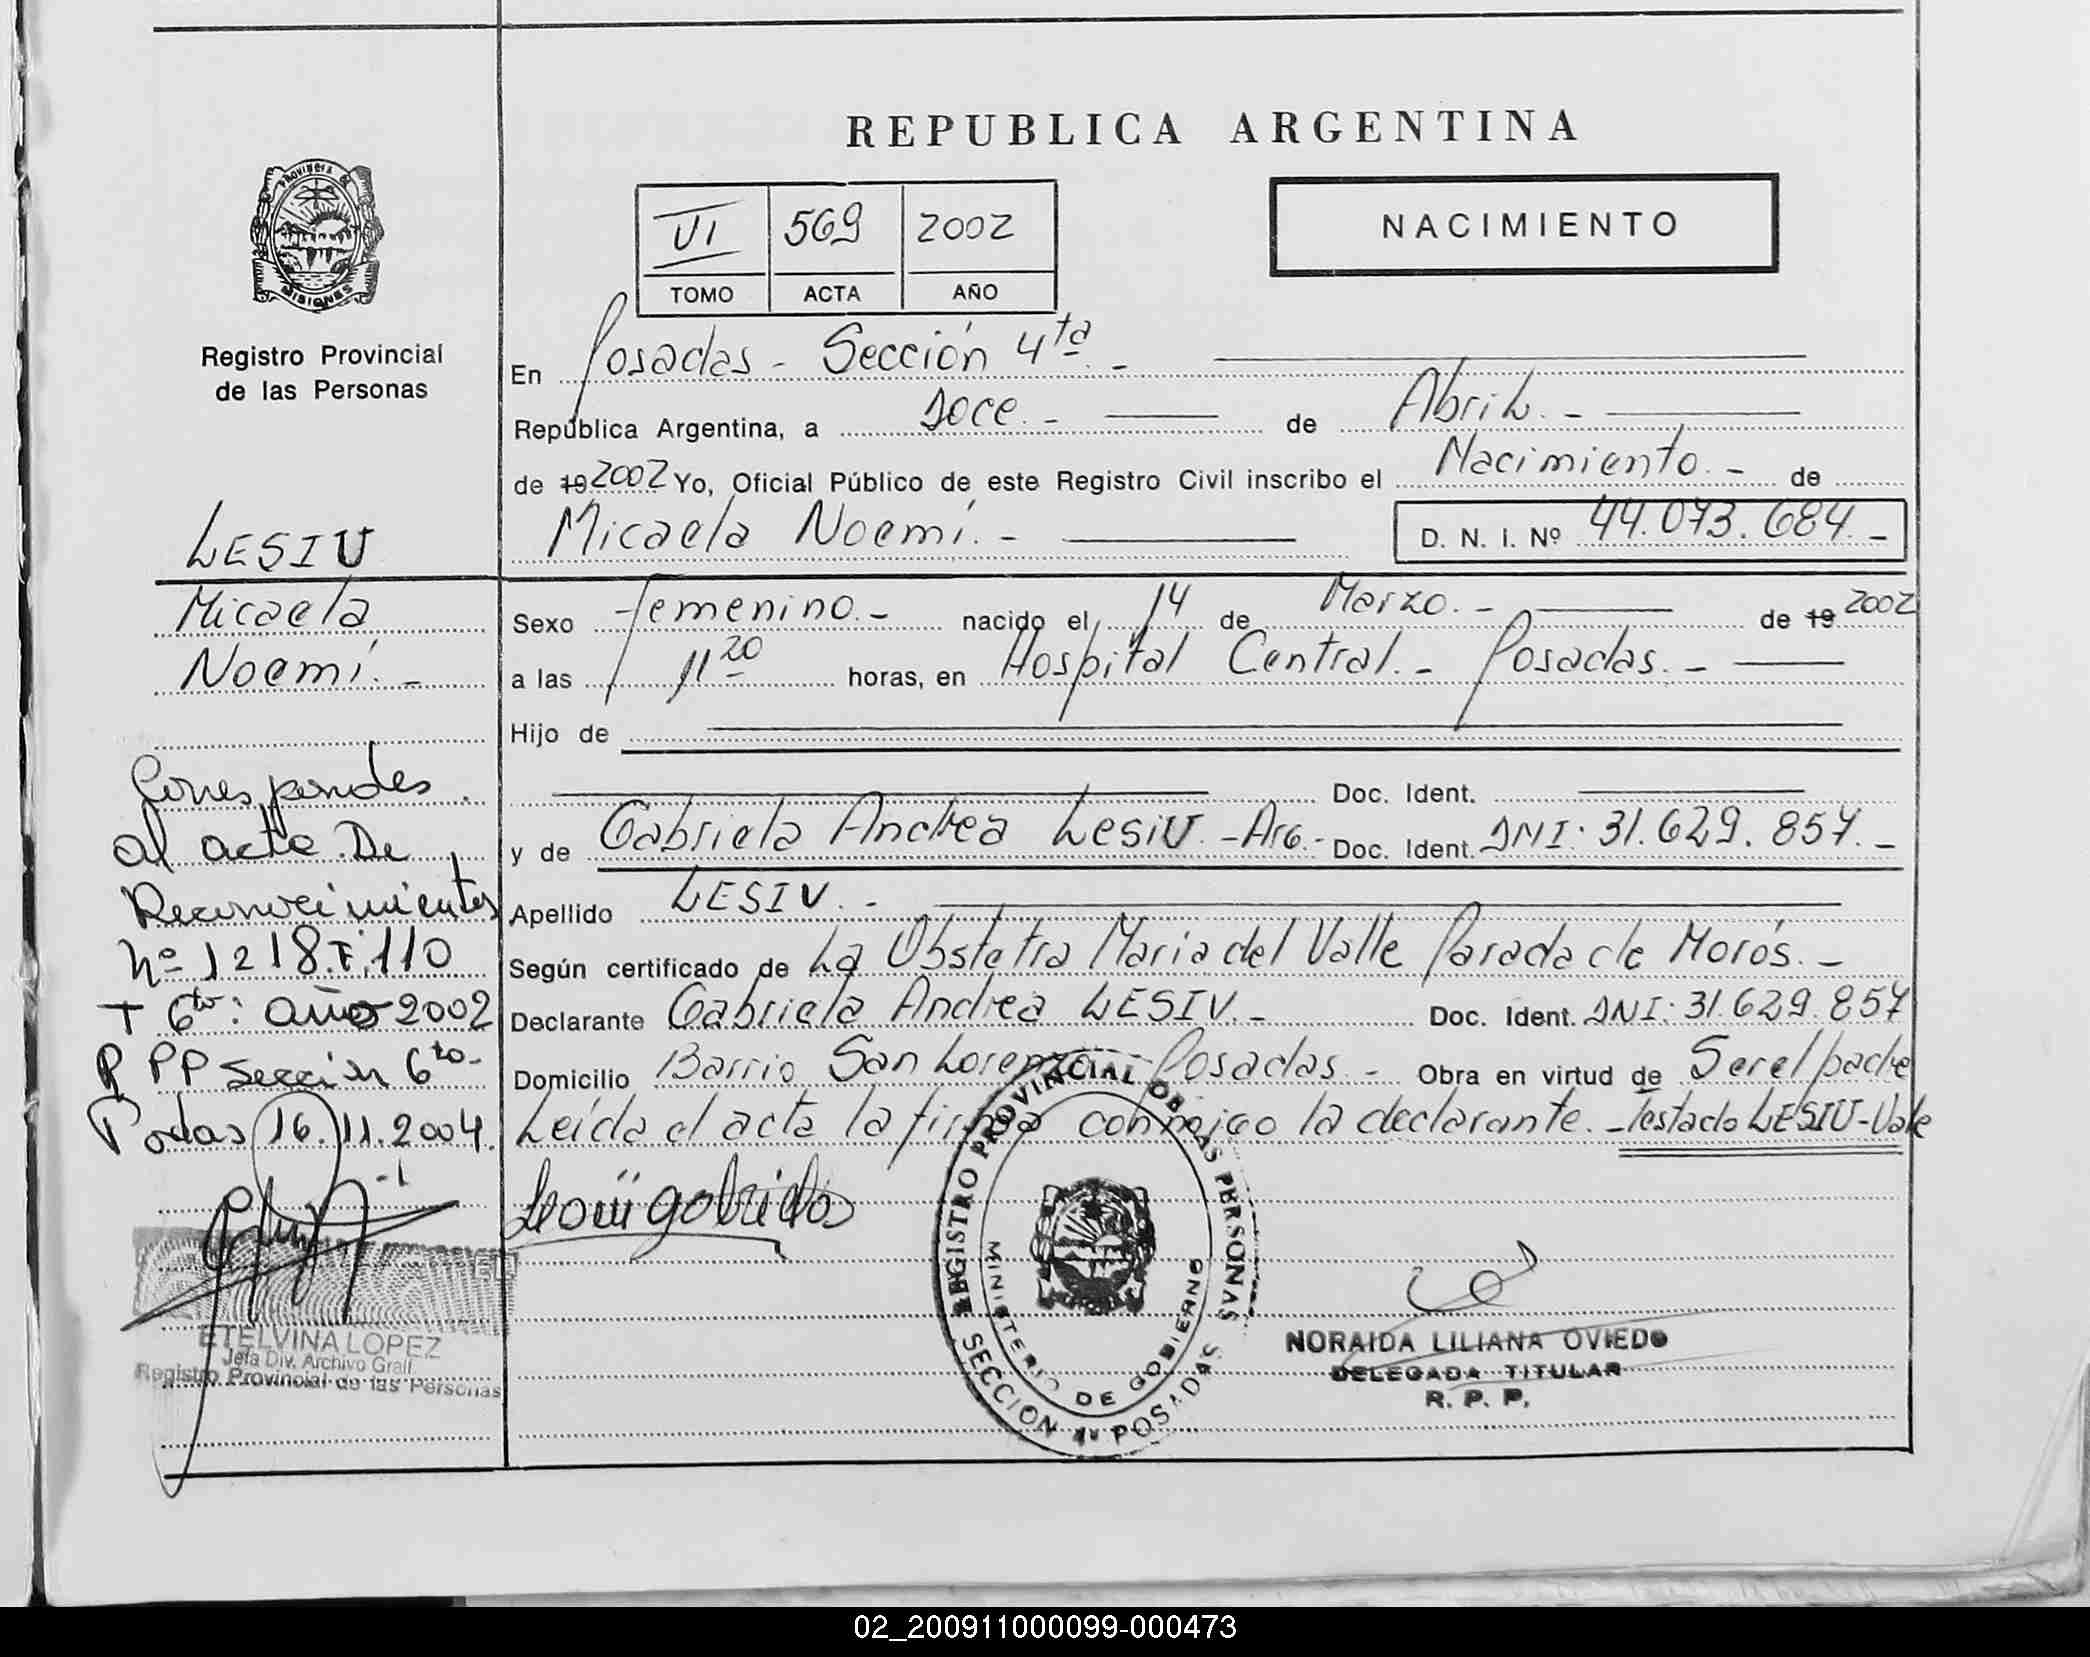 REPUBLICA ARGENTINA
PROVINCIA DE MISIONES
Registro Provincial
de las Personas
VI 569 2002
TOMO ACTA AÑO
NACIMIENTO
En Posadas - Sección 4ta. -
República Argentina, a Doce. - de Abril. -
de 19 2002 Yo, Oficial Público de este Registro Civil inscribo el Nacimiento. - de
Micaela Noemí. - D. N. I. Nº 44.073.684. -
Sexo femenino. - nacido el 14 de Marzo. - de 19 2002
a las 11 20 horas, en Hospital Central. - Posadas. -
Hijo de
Doc. Ident.
y de Gabriela Andrea Lesiu. - Arg. - Doc. Ident. DNI: 31.629.857. -
Apellido LESIV. -
Según certificado de La Obstetra Maria del Valle Parada de Morós. -
Declarante Gabriela Andrea LESIV. - Doc. Ident. DNI: 31.629.857
Domicilio Barrio San Lorenzo Posadas. - Obra en virtud de Ser el padre
Leída el acta la firma conmigo la declarante. - Testado LESIU - Vale
LESIU
Micaela
Noemí. -
Correspondes
al acta De
Reconocimientos
Nº 1218. F. 110
T 6to: año 2002
R PP Sección 6to-
Posdas 16.11.2004.
ETELVINA LOPEZ
Jefa Div. Archivo Gral.
Registro Provincial de las Personas
REGISTRO PROVINCIAL DE LAS PERSONAS
MINISTERIO DE GOBIERNO
SECCION 4ª POSADAS
NORAIDA LILIANA OVIEDO
DELEGADA TITULAR
R. P. P.
02_200911000099-000473